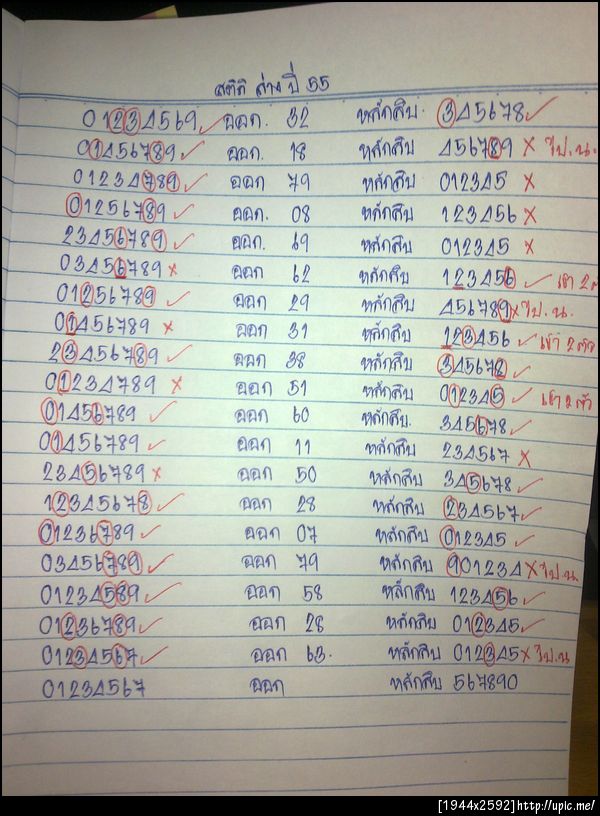 สถิติ ล่าง ปี 55
01234569 ✓ ออก. 32 หลักสิบ. 345678 ✓
01456789 ✓ ออก. 18 หลักสิบ 456789 x ไป.น.
01234789 ✓ ออก 79 หลักสิบ 012345 x
01256789 ✓ ออก. 08 หลักสิบ 123456 x
23456789 ✓ ออก. 69 หลักสิบ 012345 x
03456789 x ออก 62 หลักสิบ 123456 ✓ เข้า 2 ตัว
01256789 ✓ ออก 29 หลักสิบ 456789 x ไป.น.
01456789 x ออก 31 หลักสิบ 123456 ✓ เข้า 2 ตัว
23456789 ✓ ออก 38 หลักสิบ 345678 ✓
01234789 x ออก 51 หลักสิบ 012345 ✓ เข้า 2 ตัว
01456789 ✓ ออก 60 หลักสิบ. 345678 ✓
01456789 ✓ ออก 11 หลักสิบ 234567 x
23456789 x ออก 50 หลักสิบ 345678 ✓
12345678 ✓ ออก 28 หลักสิบ 234567 ✓
01236789 ✓ ออก 07 หลักสิบ 012345 ✓
03456789 ✓ ออก 79 หลักสิบ 901234 x ไป.น
01234589 ✓ ออก 58 หลักสิบ 123456 ✓
01236789 ✓ ออก 28 หลักสิบ 012345 ✓
01234567 ✓ ออก 63. หลักสิบ 012345 x ไป.น
01234567 ออก หลักสิบ 567890
[1944x2592]http://upic.me/